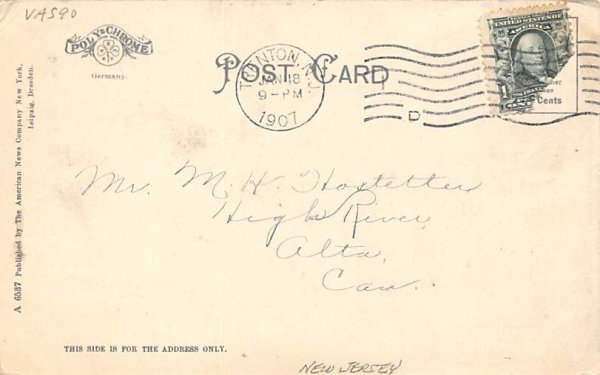 VAS90
POLY-CHROME
Germany.
POST CARD
TRENTON, N.J.
JAN 18
9-PM
1907
D
UNITED STATES OF AMERICA
1
Cents
A 6537 Published by The American News Company New York,
Leipzig, Dresden.
Mr. M. H. Hostetler
High River,
Alta,
Can.
THIS SIDE IS FOR THE ADDRESS ONLY.
NEW JERSEY